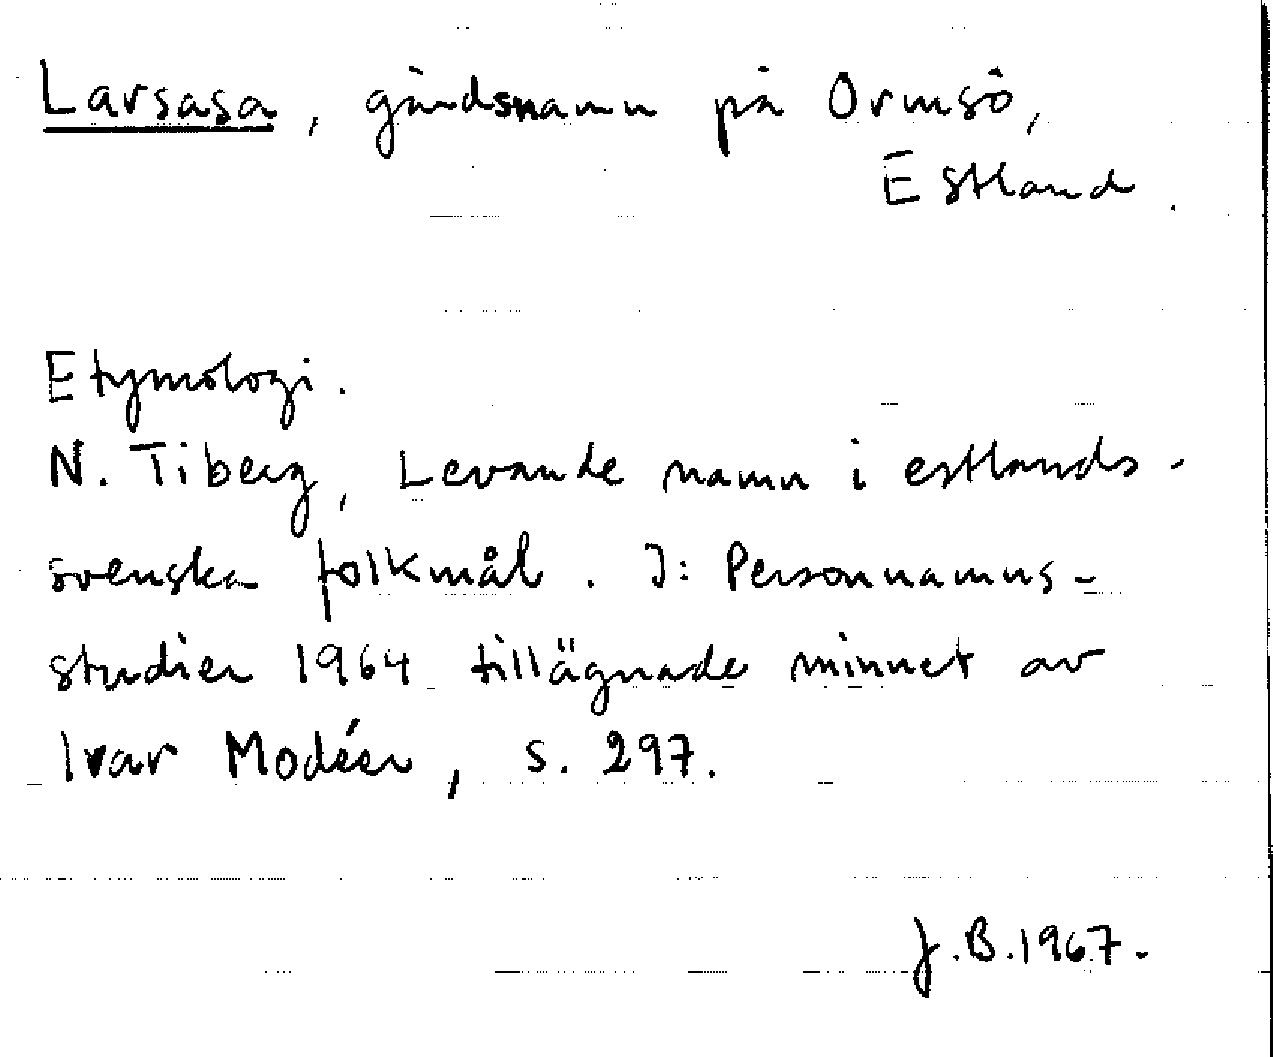 Larsasa, gårdsnamn på Ormsö,
Estland.
Etymologi.
N. Tiberg, Levande namn i estlands-
svenska folkmål. I: Personnamns-
studier 1964 tillägnade minnet av
Ivar Modéer, s. 297.
J.B.1967.